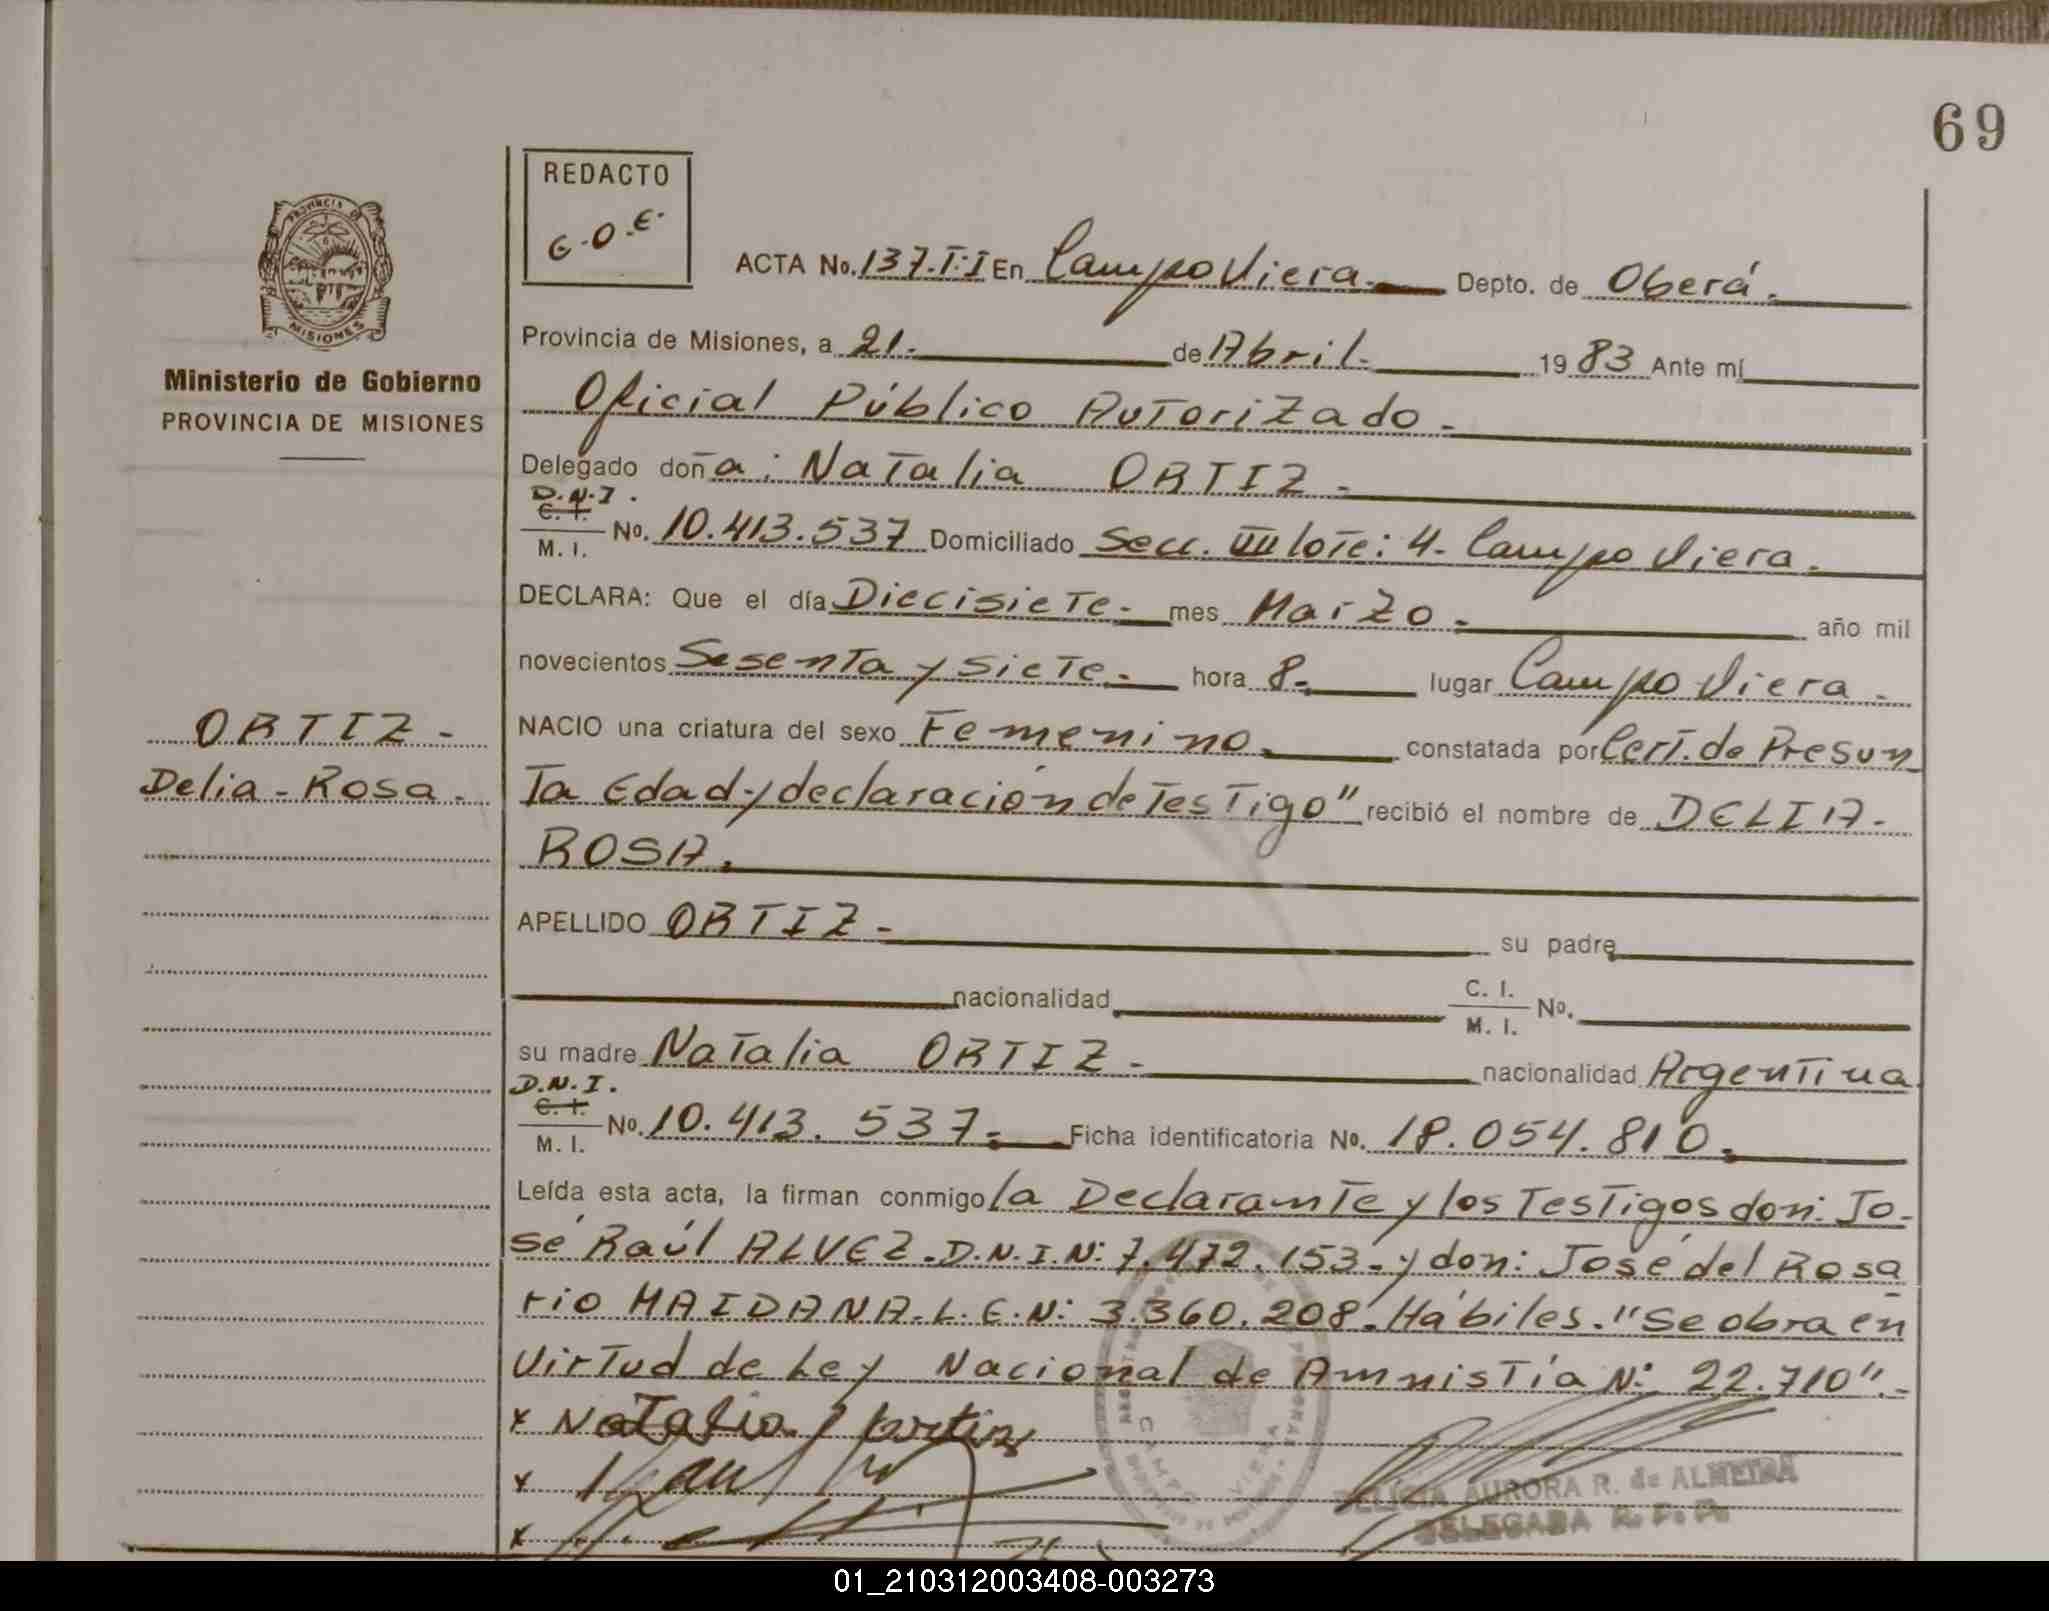 69
REDACTO
E.O.E.
PROVINCIA DE
MISIONES
Ministerio de Gobierno
PROVINCIA DE MISIONES
ACTA No. 137.T:I En Campo Viera. Depto. de Oberá.
Provincia de Misiones, a 21. de Abril. 1983 Ante mí
Oficial Público Autorizado.
Delegado doña: Natalia ORTIZ.
D.N.I.
C. I.
M. I. No. 10.413.537 Domiciliado Secc. VIII lote: 4. Campo Viera.
DECLARA: Que el día Diecisiete. mes Marzo. año mil
novecientos Sesenta y siete. hora 8. lugar Campo Viera.
NACIO una criatura del sexo Femenino. constatada por Cert. de Presun
ta Edad y declaración de Testigo" recibió el nombre de DELIA.
ROSA.
ORTIZ.
Delia-Rosa.
APELLIDO ORTIZ. su padre
nacionalidad C. I.
M. I. No.
su madre Natalia ORTIZ. nacionalidad Argentina
D.N.I.
C. I.
M. I. No. 10.413.537. Ficha identificatoria No. 18.054.810.
Leída esta acta, la firman conmigo la Declarante y los Testigos don: Jo-
sé Raúl ALVEZ. D.N.I.N: 7.472.153. y don: José del Rosa
rio MAIDANA. L.E.N: 3.360.208. Hábiles. "Se obra en
Virtud de Ley Nacional de Amnistía N: 22.710".
x Natalia ortiz
x
x
CAMPO VIERA
DELICIA AURORA R. de ALMEIDA
DELEGADA R. P. P.
01_210312003408-003273